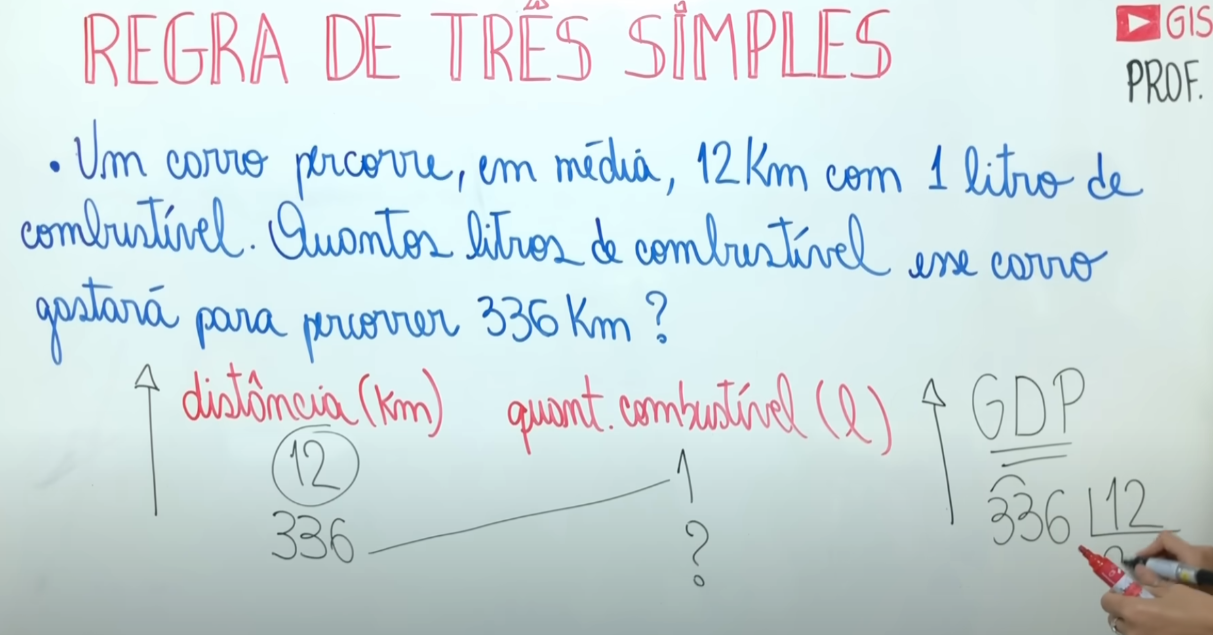 REGRA DE TRÊS SIMPLES
GIS
PROF.
• Um carro percorre, em média, 12Km com 1 litro de
combustível. Quantos litros de combustível esse carro
gastará para percorrer 336 Km?
distância (km) quant. combustível (l) GDP
12 1
336 ?
336 12